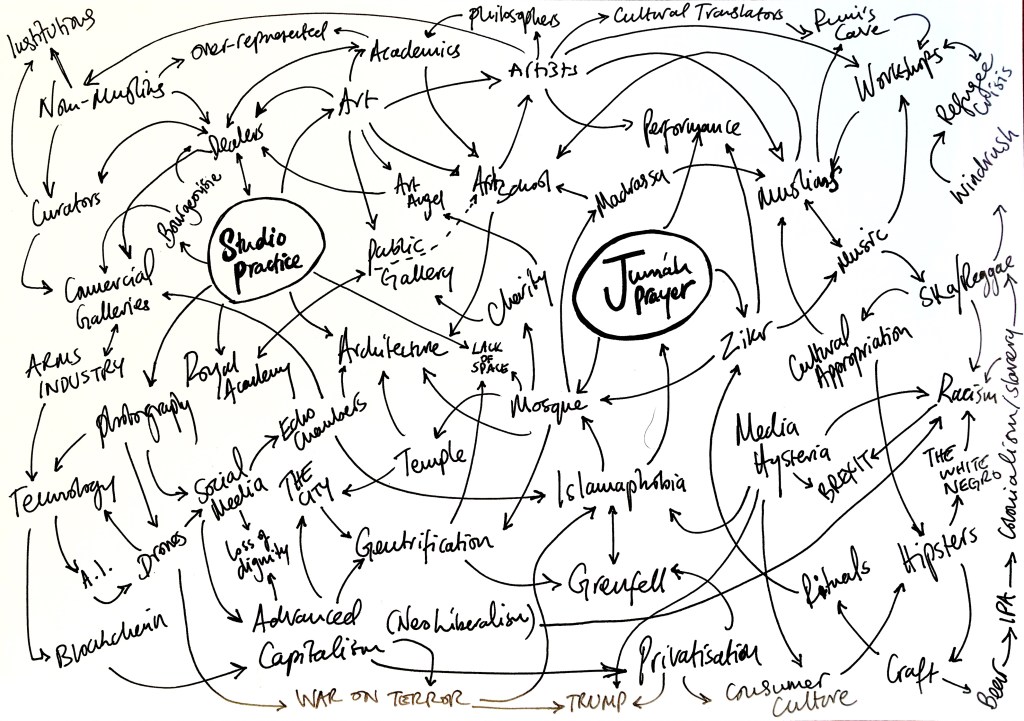 Institutions
over-represented
Academics
philosophers
Cultural Translators
Rumi's
Cave
Non-Muslims
Artists
Workshops
Refugee
Crisis
Art
Dealers
Performance
Windrush
Curators
Bourgeoisie
Art
Angel
Art School
Madrassa
Muslims
Studio
practice
Public
Gallery
Jumáh
prayer
Music
Commercial
Galleries
Charity
Ska/Reggae
ARMS
INDUSTRY
Royal
Academy
Architecture
LACK
OF
SPACE
Zikr
Cultural
Appropriation
photography
Echo
Chambers
Mosque
Racism
Temple
Media
Hysteria
BREXIT
THE
WHITE
NEGRO
Technology
Social
Media
THE
CITY
Islamaphobia
A.I.
Drones
Loss of
dignity
Gentrification
Grenfell
Rituals
Hipsters
Blockchain
Advanced
Capitalism
(Neoliberalism)
Privatisation
Craft
Beer → IPA → Colonialism/slavery →
WAR ON TERROR
TRUMP
Consumer
Culture